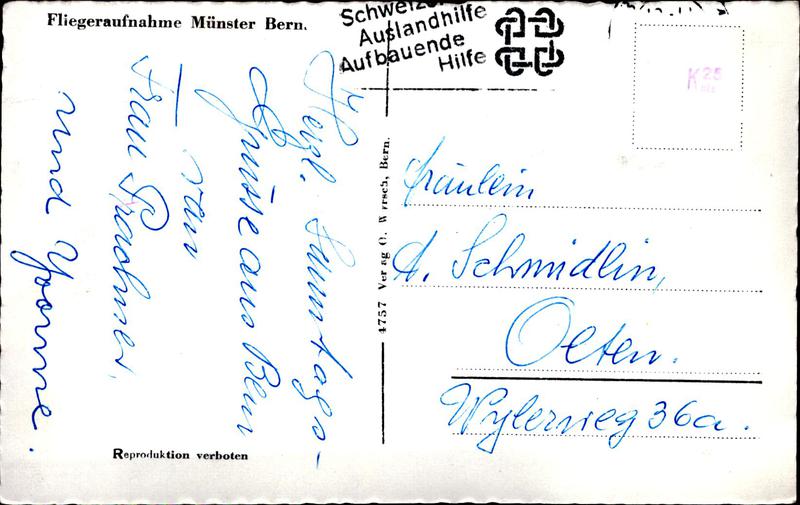 Fliegeraufnahme Münster Bern.
Schweizer
Auslandhilfe
Aufbauende
Hilfe
K 25
Herzl. Sonntags-
Grüsse aus Bern
von
Frau
und Yvonne.
4757 Verlag O. Wyrsch, Bern.
Fräulein
A. Schmidlin,
Olten.
Wylerweg 36a.
Reproduktion verboten